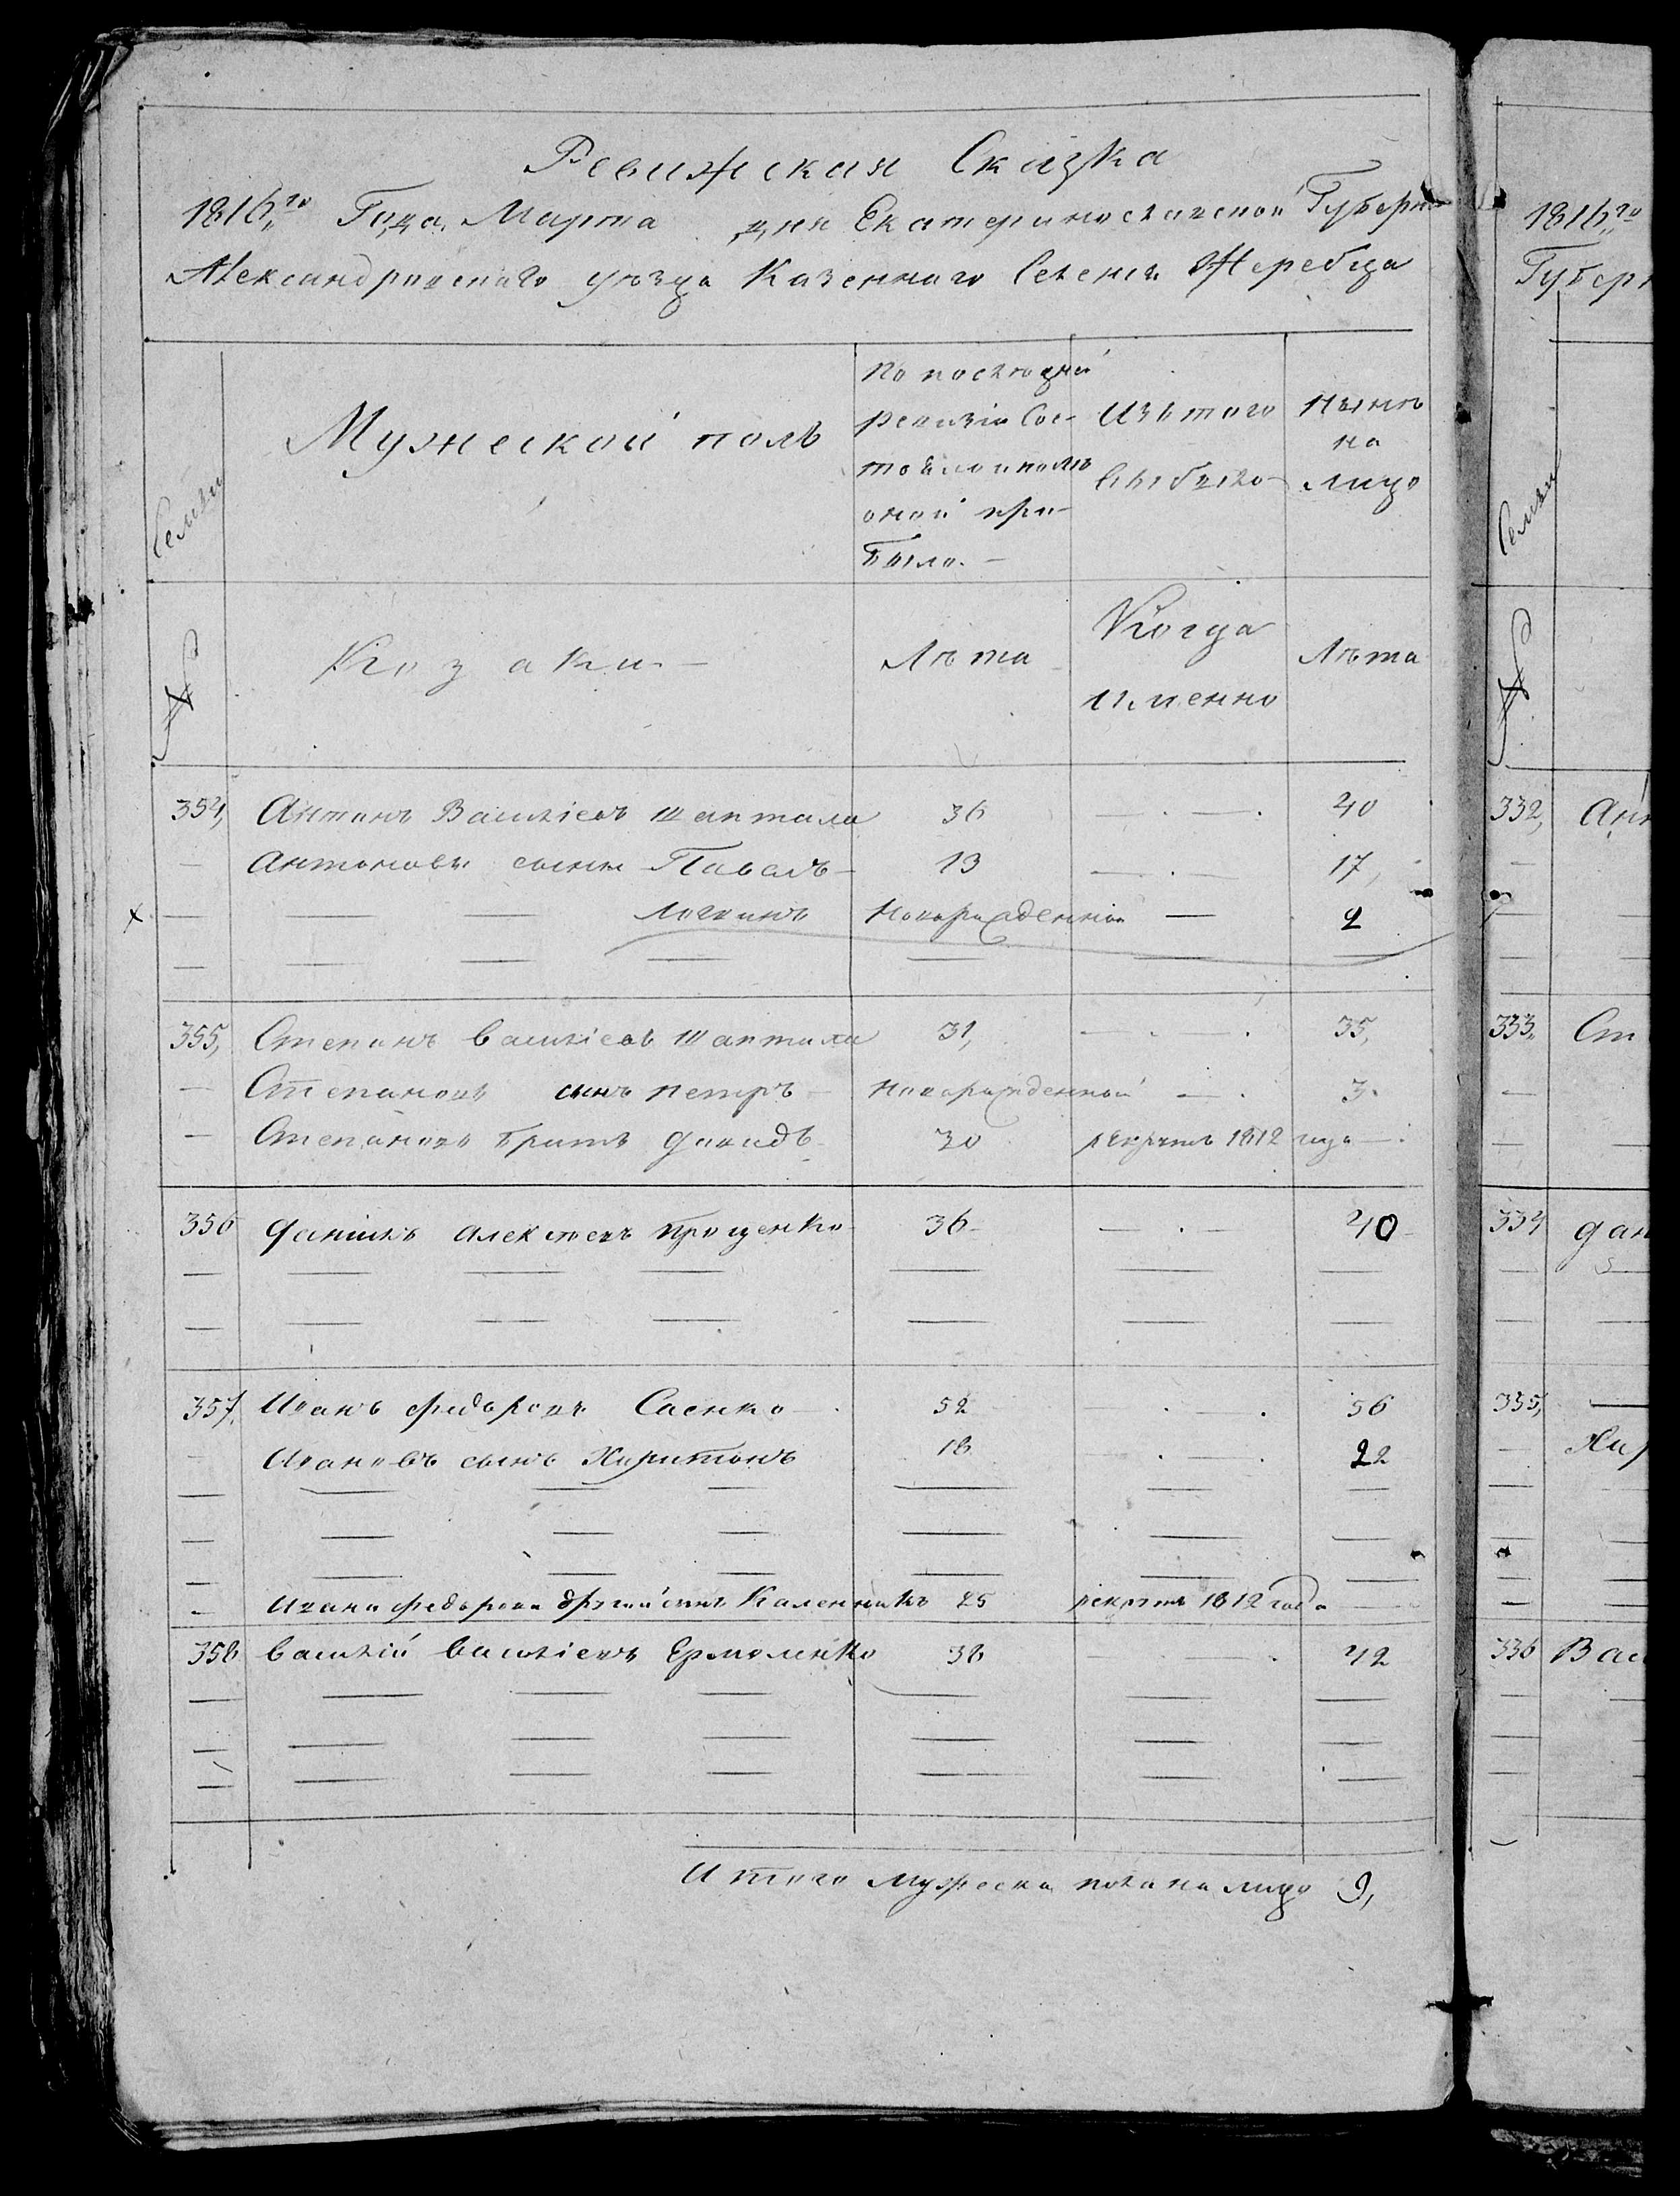 Ревижская Сказка
1816го Года Марта дня Екатеринославской Губерн
Александровскаго уезда Казеннаго Селения Жеребца
Семьи
Мужеской полъ
По последней ревизiи Состояло и после оной прибыло.
Изъ того выбыло
Ныне на лицо
№
Козаки
Лѣта
Когда именно
Лѣта
354, Антонъ Васильевъ Шаптала 36 — 40
— Антоновы сыны Павелъ 13 — 17,
— Логвинъ Новорожденной — 2
355, Степанъ Васильевъ Шаптала 31, — 35,
— Степановъ сынъ петръ Новорожденной — 3
— Степановъ братъ давидъ 30 рекрутъ 1812 года
356 данило алексеевъ проценко 36 — 40
357, Иванъ федоровъ Саенко 52 — 56
Ивановъ сынъ Харитонъ 18 — 22
— Ивана федорова другой сынъ Каленникъ 25 рекрутъ 1812 года
358 василiй васильевъ Ермоленко 38 — 42
Итого мужеска пола на лицо 9,
1816го
Губерн
Семьи
№
332, Ан
333, Ст
334 дан
335,
Хар
336 Вас